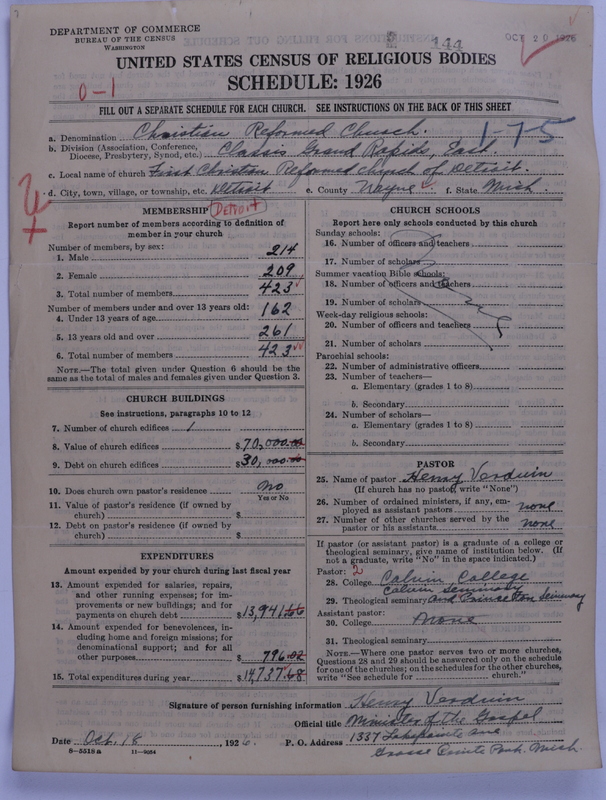 DEPARTMENT OF COMMERCE
BUREAU OF THE CENSUS
WASHINGTON
144
OCT 20 1926
UNITED STATES CENSUS OF RELIGIOUS BODIES
SCHEDULE: 1926
0-1
FILL OUT A SEPARATE SCHEDULE FOR EACH CHURCH. SEE INSTRUCTIONS ON THE BACK OF THIS SHEET
a. Denomination Christian Reformed Church. 1-7-5
b. Division (Association, Conference, Diocese, Presbytery, Synod, etc.) Classis Grand Rapids, East.
c. Local name of church First Christian Reformed Church of Detroit.
d. City, town, village, or township, etc. Detroit e. County Wayne f. State Mich.
MEMBERSHIP DETROIT
Report number of members according to definition of
member in your church
Number of members, by sex:
1. Male 214
2. Female 209
3. Total number of members 423
Number of members under and over 13 years old:
4. Under 13 years of age 162
5. 13 years old and over 261
6. Total number of members 423
NOTE.—The total given under Question 6 should be
same as the total of males and females given under Question 3.
CHURCH BUILDINGS
See instructions, paragraphs 10 to 12
7. Number of church edifices 1
8. Value of church edifices $70,000.00
9. Debt on church edifices $30,000.00
10. Does church own pastor's residence no
Yes or No
11. Value of pastor's residence (if owned by
church) $
12. Debt on pastor's residence (if owned by
church) $
EXPENDITURES
Amount expended by your church during last fiscal year
13. Amount expended for salaries, repairs,
and other running expenses; for im-
provements or new buildings; and for
payments on church debt $13,941.66
14. Amount expended for benevolences, in-
cluding home and foreign missions; for
denominational support; and for all
other purposes $796.02
15. Total expenditures during year $14,737.68
CHURCH SCHOOLS
Report here only schools conducted by this church
Sunday schools:
16. Number of officers and teachers
17. Number of scholars
Summer vacation Bible schools:
18. Number of officers and teachers
19. Number of scholars
Week-day religious schools:
20. Number of officers and teachers
21. Number of scholars
Parochial schools:
22. Number of administrative officers
23. Number of teachers—
a. Elementary (grades 1 to 8)
b. Secondary
24. Number of scholars—
a. Elementary (grades 1 to 8)
b. Secondary
None
PASTOR
25. Name of pastor Henry Verduin
(If church has no pastor, write "None")
26. Number of ordained ministers, if any, em-
ployed as assistant pastors none
27. Number of other churches served by the
pastor or his assistants none
If pastor (or assistant pastor) is a graduate of a college or
theological seminary, give name of institution below. (If
not a graduate, write "No" in the space indicated.)
Pastor: 2
28. College Calvin College
Calvin Seminary
29. Theological seminary and Princeton Seminary
Assistant pastor:
30. College None
31. Theological seminary
NOTE.—Where one pastor serves two or more churches,
Questions 28 and 29 should be answered only on the schedule
for one of the churches; on the schedules for the other churches,
write "See schedule for church."
Signature of person furnishing information Henry Verduin
Official title Minister of the Gospel
Date Oct. 18, 1926. P. O. Address 1337 Lakepointe ave
8-5518 a 11-9054 Grosse Pointe Park, Mich.